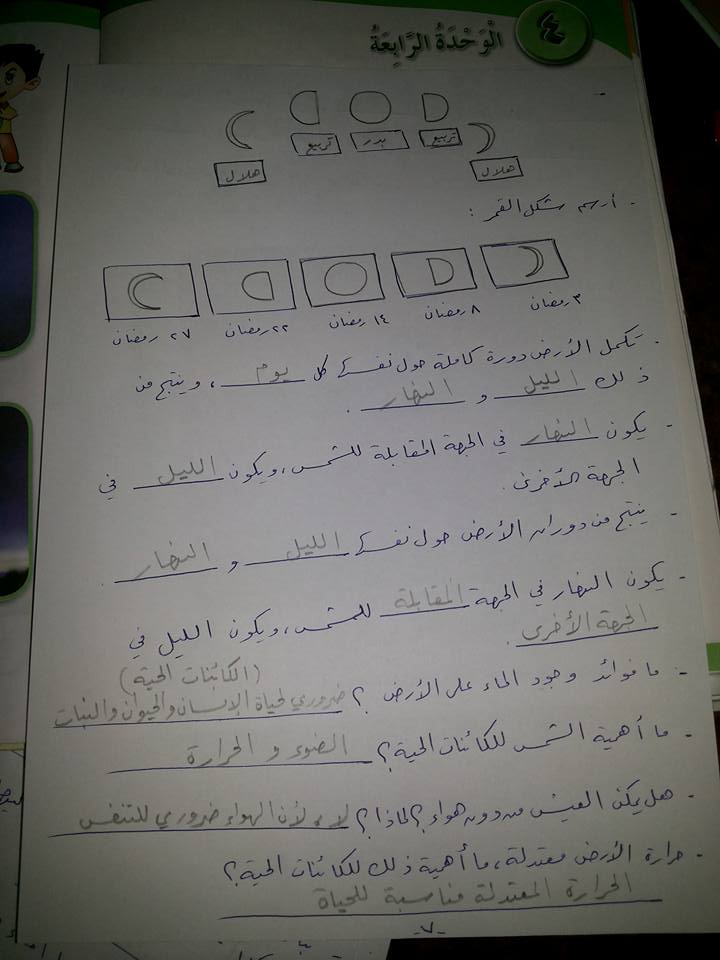 الْوَحْدَةُ الرَّابِعَةُ ٤
تربيع بدر تربيع
هلال هلال
- أرسم شكل القمر :
٣ رمضان ٨ رمضان ١٤ رمضان ٢٢ رمضان ٢٧ رمضان
- تكمل الأرض دورة كاملة حول نفسها كل يوم ، وينتج من
ذلك الليل و النهار .
- يكون النهار في الجهة المقابلة للشمس ، ويكون الليل في
الجهة الأخرى .
- ينتج من دوران الأرض حول نفسها الليل و النهار .
- يكون النهار في الجهة المقابلة للشمس ، ويكون الليل في
الجهة الأخرى .
(الكائنات الحية)
- ما فوائد وجود الماء على الأرض ؟ ضروري لحياة الإنسان والحيوان والنبات
- ما أهمية الشمس للكائنات الحية ؟ الضوء و الحرارة
- هل يمكن العيش من دون هواء ؟ لماذا ؟ لا ، لأن الهواء ضروري للتنفس
- حرارة الأرض معتدلة ، ما أهمية ذلك للكائنات الحية ؟
الحرارة المعتدلة مناسبة للحياة
-٧-